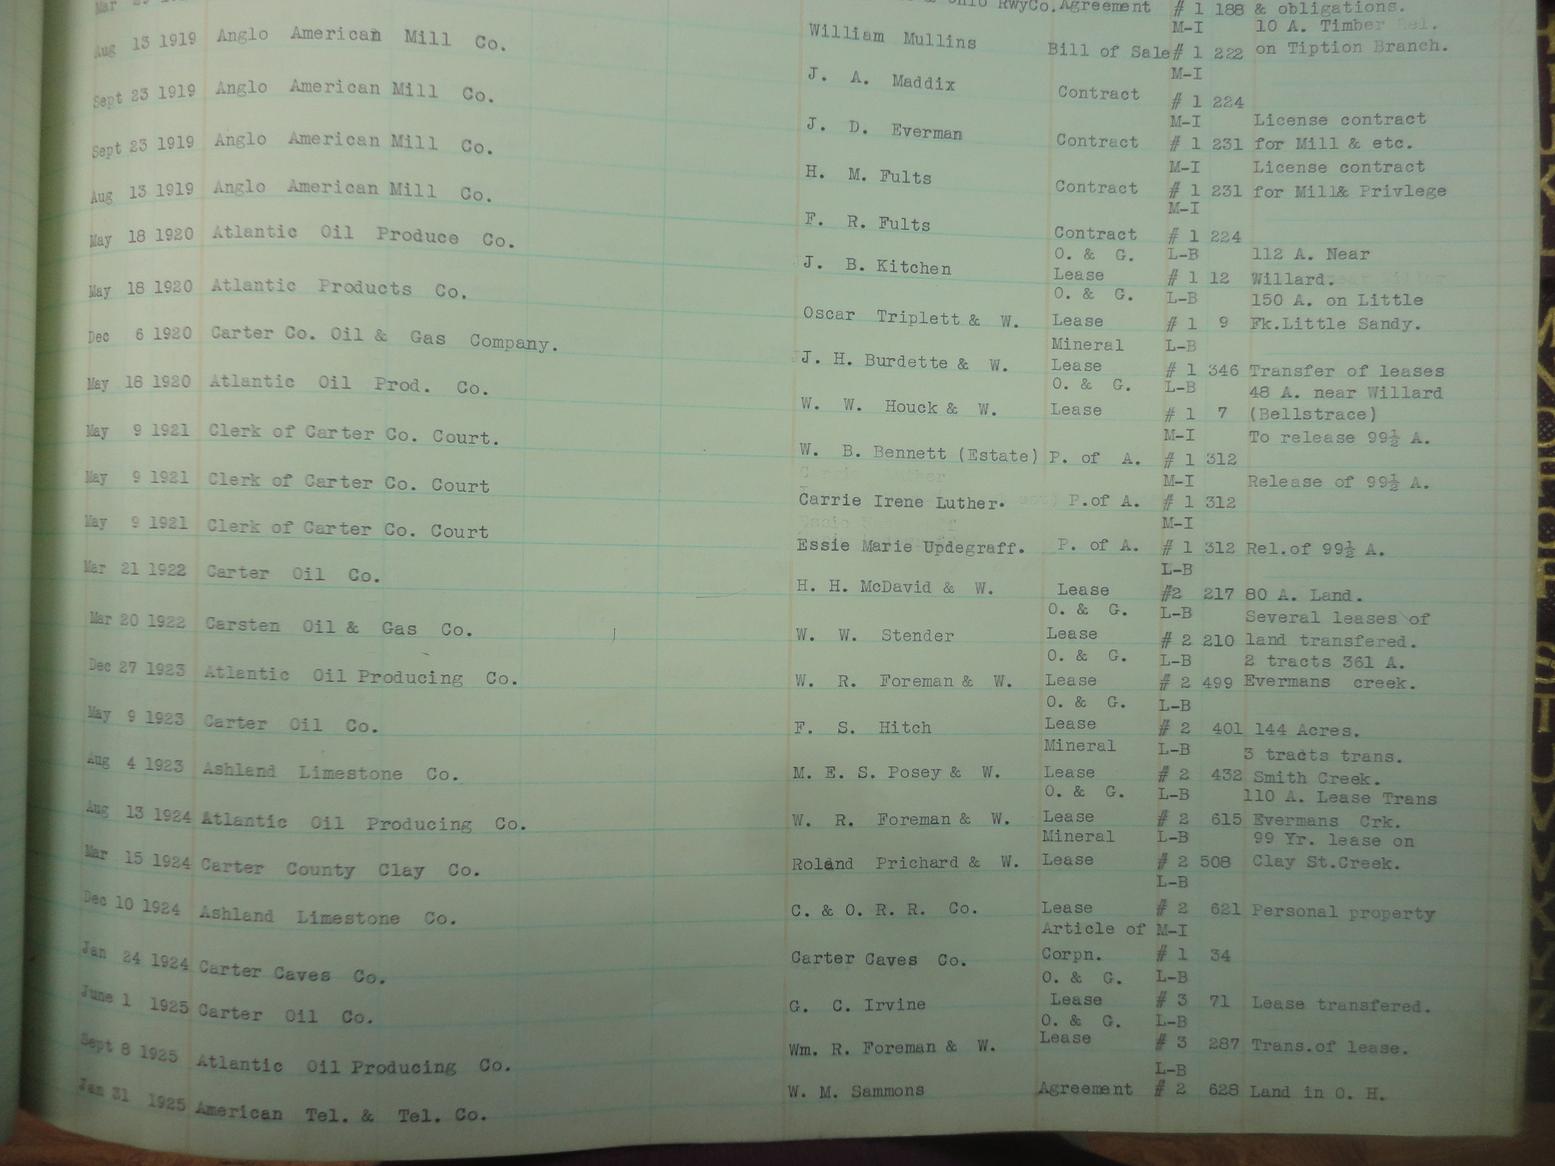 RwyCo. Agreement # 1 188 & obligations.
M-I 10 A. Timber
Aug 13 1919 Anglo American Mill Co. William Mullins Bill of Sale # 1 222 on Tiption Branch.
M-I
Sept 23 1919 Anglo American Mill Co. J. A. Maddix Contract # 1 224
M-I License contract
Sept 23 1919 Anglo American Mill Co. J. D. Everman Contract # 1 231 for Mill & etc.
M-I License contract
Aug 13 1919 Anglo American Mill Co. H. M. Fults Contract # 1 231 for Mill& Privlege
M-I
May 18 1920 Atlantic Oil Produce Co. F. R. Fults Contract # 1 224
O. & G. L-B 112 A. Near
May 18 1920 Atlantic Products Co. J. B. Kitchen Lease # 1 12 Willard.
O. & G. L-B 150 A. on Little
Dec 6 1920 Carter Co. Oil & Gas Company. Oscar Triplett & W. Lease # 1 9 Fk.Little Sandy.
Mineral L-B
May 18 1920 Atlantic Oil Prod. Co. J. H. Burdette & W. Lease # 1 346 Transfer of leases
O. & G. L-B 48 A. near Willard
May 9 1921 Clerk of Carter Co. Court. W. W. Houck & W. Lease # 1 7 (Bellstrace)
M-I To release 99½ A.
May 9 1921 Clerk of Carter Co. Court W. B. Bennett (Estate) P. of A. # 1 312
M-I Release of 99½ A.
May 9 1921 Clerk of Carter Co. Court Carrie Irene Luther. P.of A. # 1 312
M-I
Mar 21 1922 Carter Oil Co. Essie Marie Updegraff. P. of A. # 1 312 Rel.of 99½ A.
L-B
Mar 20 1922 Carsten Oil & Gas Co. H. H. McDavid & W. Lease #2 217 80 A. Land.
O. & G. L-B Several leases of
Dec 27 1923 Atlantic Oil Producing Co. W. W. Stender Lease # 2 210 land transfered.
O. & G. L-B 2 tracts 361 A.
May 9 1923 Carter Oil Co. W. R. Foreman & W. Lease # 2 499 Evermans creek.
O. & G. L-B
Aug 4 1923 Ashland Limestone Co. F. S. Hitch Lease # 2 401 144 Acres.
Mineral L-B 3 tracts trans.
Aug 13 1924 Atlantic Oil Producing Co. M. E. S. Posey & W. Lease # 2 432 Smith Creek.
O. & G. L-B 110 A. Lease Trans
Mar 15 1924 Carter County Clay Co. W. R. Foreman & W. Lease # 2 615 Evermans Crk.
Mineral L-B 99 Yr. lease on
Dec 10 1924 Ashland Limestone Co. Roland Prichard & W. Lease # 2 508 Clay St.Creek.
L-B
Jan 24 1924 Carter Caves Co. C. & O. R. R. Co. Lease # 2 621 Personal property
Article of M-I
June 1 1925 Carter Oil Co. Carter Caves Co. Corpn. # 1 34
O. & G. L-B
Sept 8 1925 Atlantic Oil Producing Co. G. C. Irvine Lease # 3 71 Lease transfered.
O. & G. L-B
Jan 31 1925 American Tel. & Tel. Co. Wm. R. Foreman & W. Lease # 3 287 Trans.of lease.
L-B
W. M. Sammons Agreement # 2 628 Land in O. H.